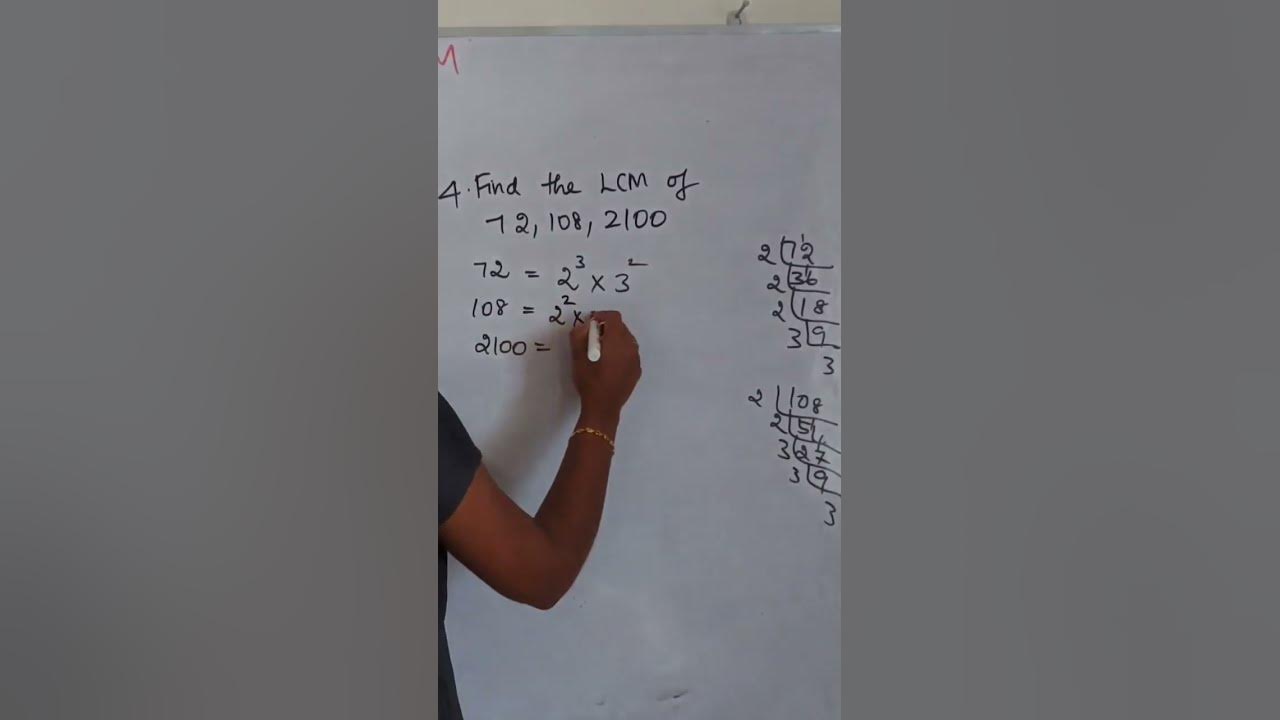 M
4. Find the LCM of
72, 108, 2100
72 = 2³ × 3²
108 = 2² ×
2100 =
2 | 72
2 | 36
2 | 18
3 | 9
3
2 | 108
2 | 54
3 | 27
3 | 9
3